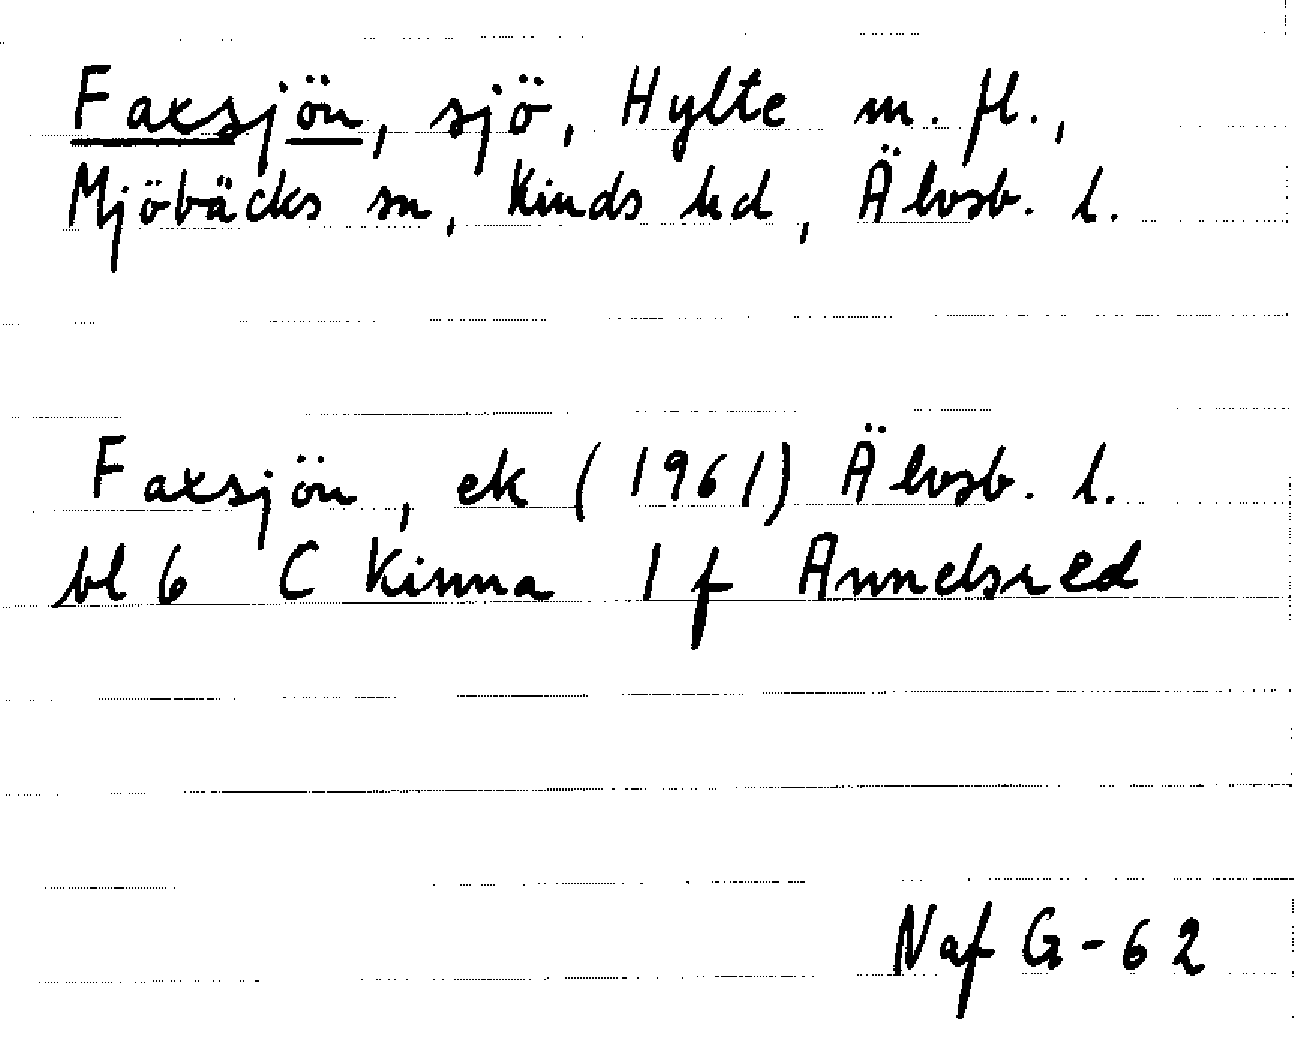 Faxsjön, sjö, Hylte m. fl.,
Mjöbäcks sn, Kinds hd, Älvsb. l.
Faxsjön, ek (1961) Älvsb. l.
bl 6 C Kinna 1 f Annelsred
Naf G-62